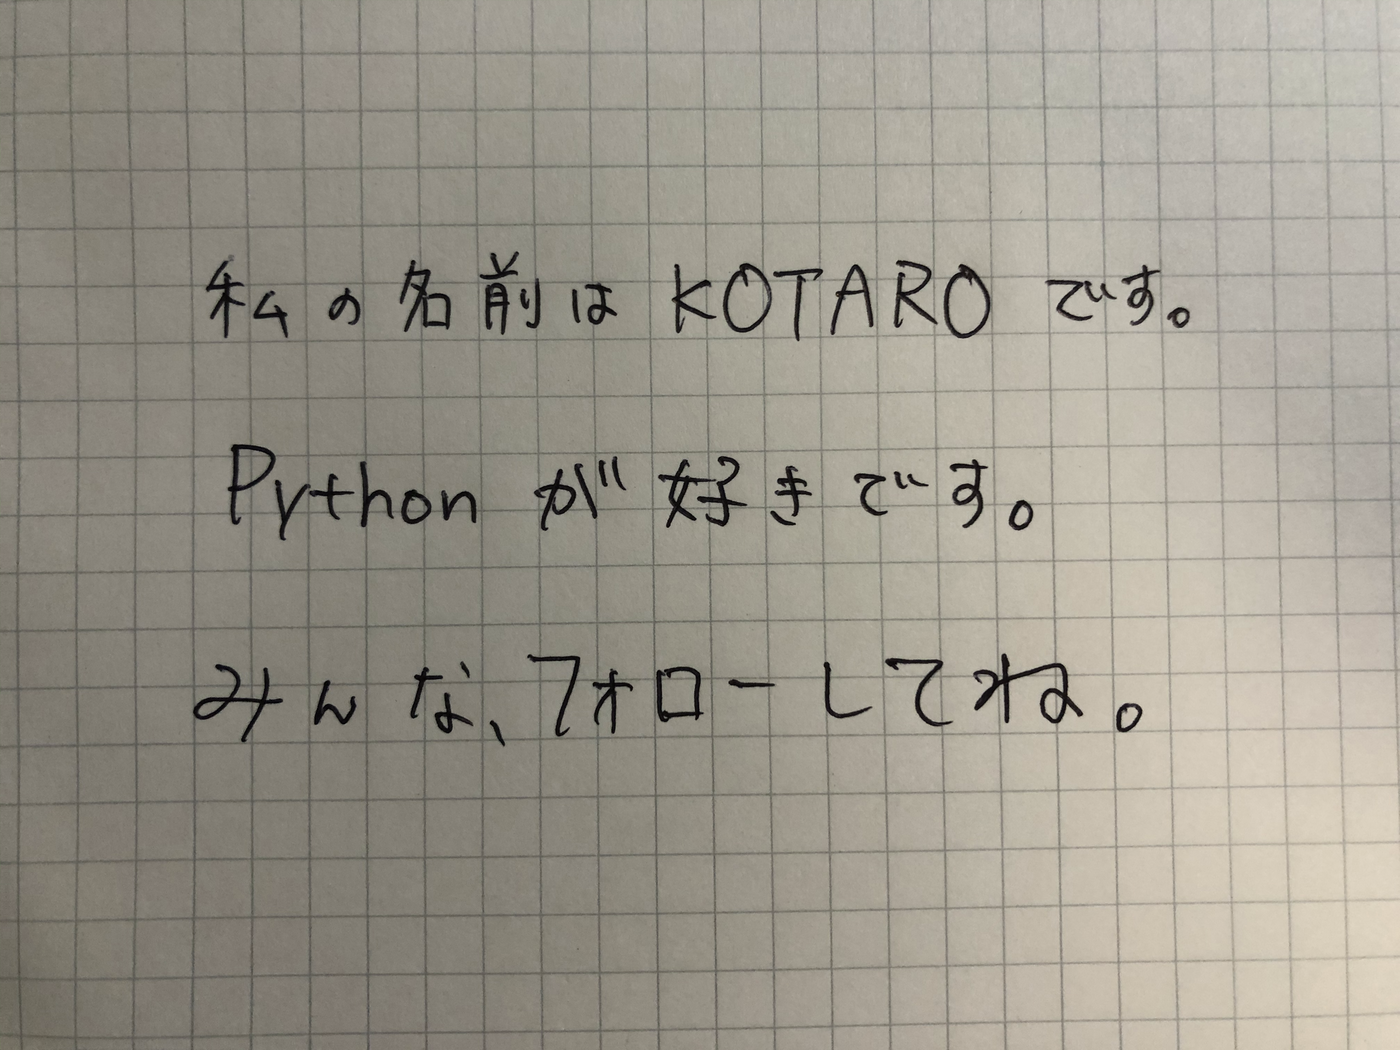 私の名前は KOTARO です。
Python が好きです。
みんな、フォローしてね。